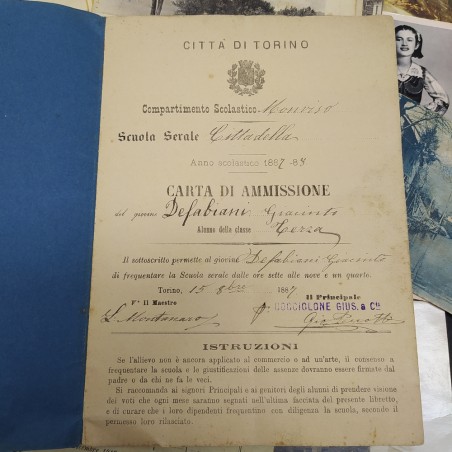 CITTÀ DI TORINO
Compartimento Scolastico Monviso
Scuola Serale Cittadella
Anno scolastico 1887-88
CARTA DI AMMISSIONE
del giovane Defabiani Giacinto
Alunno della classe Terza
Il sottoscritto permette al giovine Defabiani Giacinto
di frequentare la Scuola serale dalle ore sette alle nove e un quarto.
Torino, 15 8bre 1887
Fº Il Maestro Il Principale
L. Montanaro BOCCIGLONE GIUS. & Cº
ISTRUZIONI
Se l'allievo non è ancora applicato al commercio o ad un'arte, il consenso a
frequentare la scuola e le giustificazioni delle assenze dovranno essere firmate dal
padre o da chi ne fa le veci.
Si raccomanda ai signori Principali e ai genitori degli alunni di prendere visione
dei voti che ogni mese saranno segnati nell'ultima facciata del presente libretto,
e di curare che i loro dipendenti frequentino con diligenza la scuola, secondo il
permesso loro rilasciato.